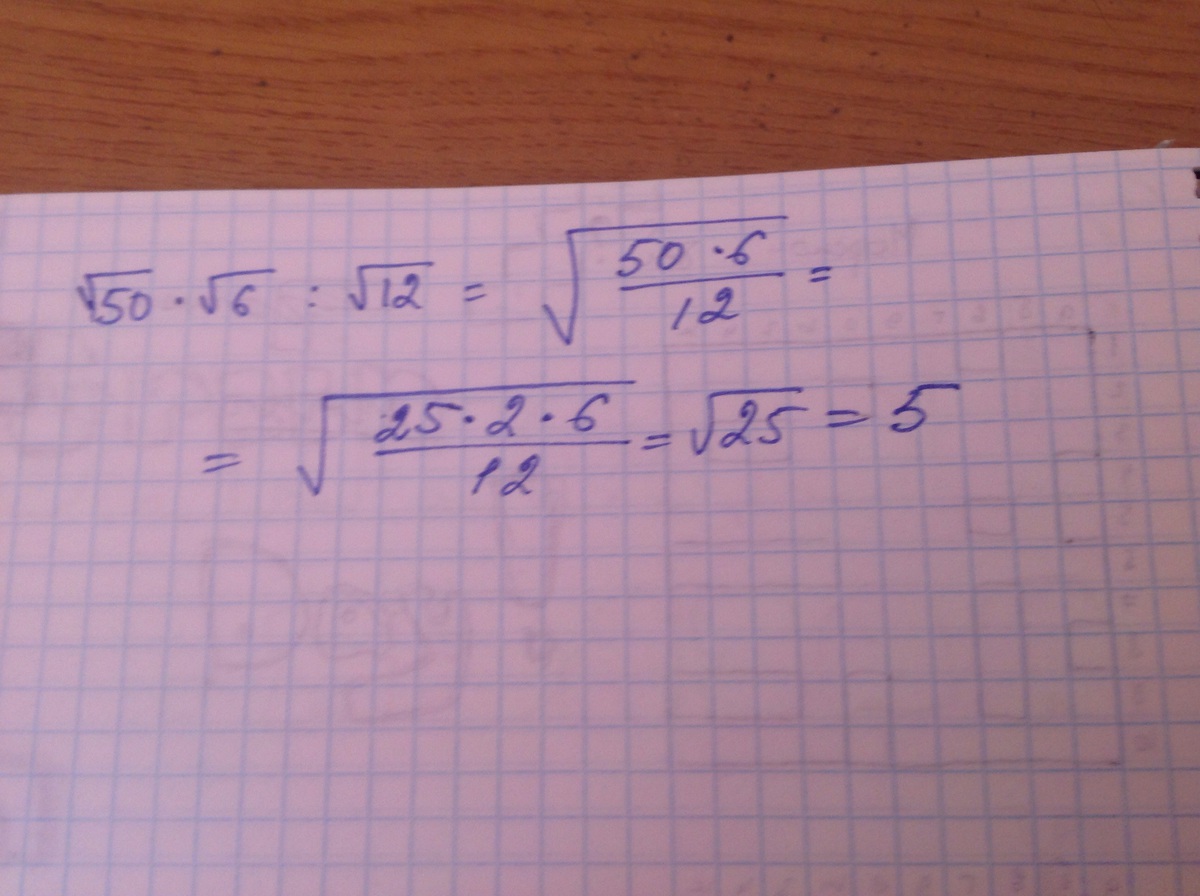 √50 · √6 : √12 = √(50 · 6 / 12) =
= √(25 · 2 · 6 / 12) = √25 = 5